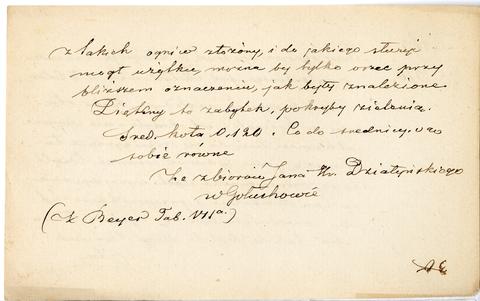 z takich ogniw złożony, i do jakiego służyć
mógł użytku, można by tylko orzec przy
bliższem oznaczeniu, jak były znalezione
Piękny to zabytek, pokryty zielenią.
Śred. koła 0,120. Co do średnicy, są
sobie równe
Ze zbiorów Jana Hr. Działyńskiego
w Gołuchowie
(Z Beyer Tab. VII a.)